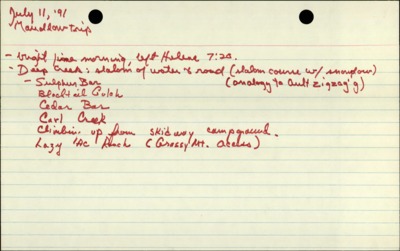 July 11, '91
Meadow trip
- bright June morning, left Helena 7:20.
- Deep Creek: slalom of water & road (slalom course w/ snowplow)
- Sulphur Bar (analogy to ault zigzag'g)
Blacktail Gulch
Cedar Bar
Carl Creek
Climbin, up from skidway campground.
Lazy 'AC Ranch (Grassy Mt. access)